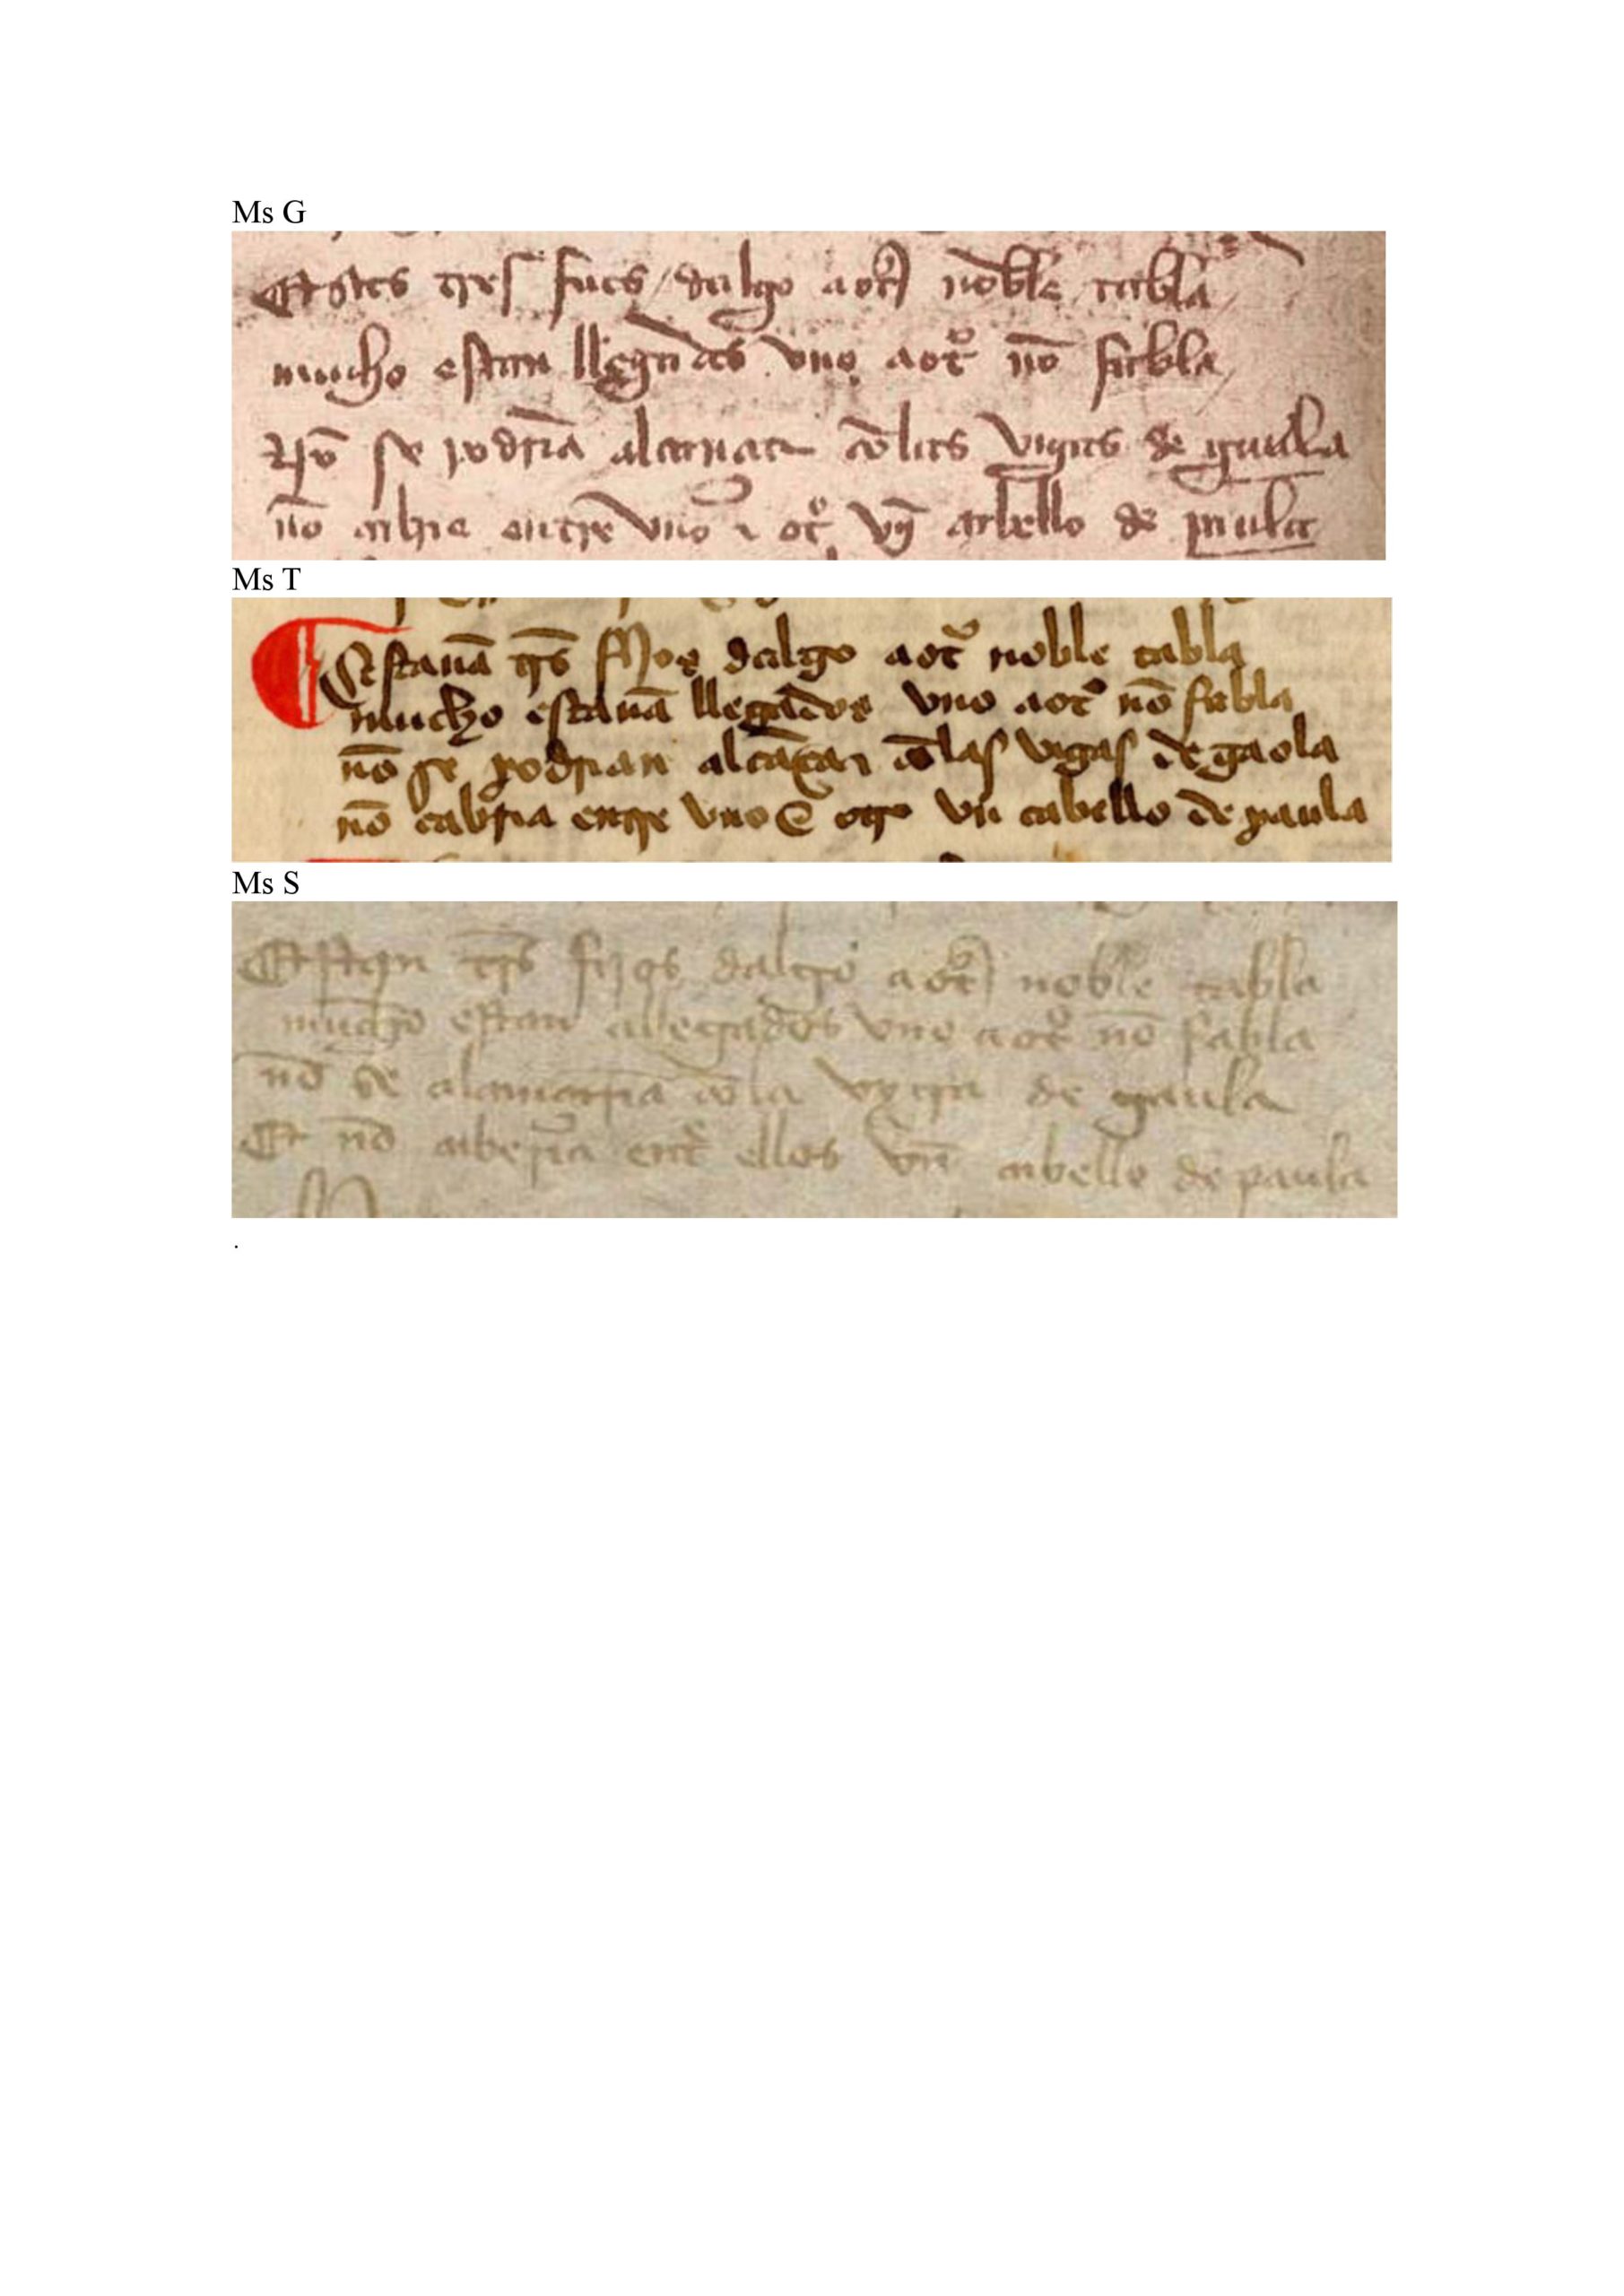 Ms G
Estos tres fijos dalgo a otᷓ noble tabla
mucho estan llegados vno a otº nō fabla
Nō se podria alcançar cō las vigas de gaula
nō cabrie entre vno ⁊ otº vn cabello de paula
Ms T
Estauā tᷓs fijos dalgo a otᷓ noble tabla
mucho estauā llegados vno a otº nō fabla
nō se podrian alcāçar cō las vigas de gaola
nō cabria entre vno e otro vn cabello de paula
Ms S
Estan tᷓs fijos dalgo a otᷓ noble tabla
mucho estan allegados vno a otº nō fabla
nō se alcançaria cō la vyga de gaula
Et nō caberia entᷓ ellos vn cabello de paula
.